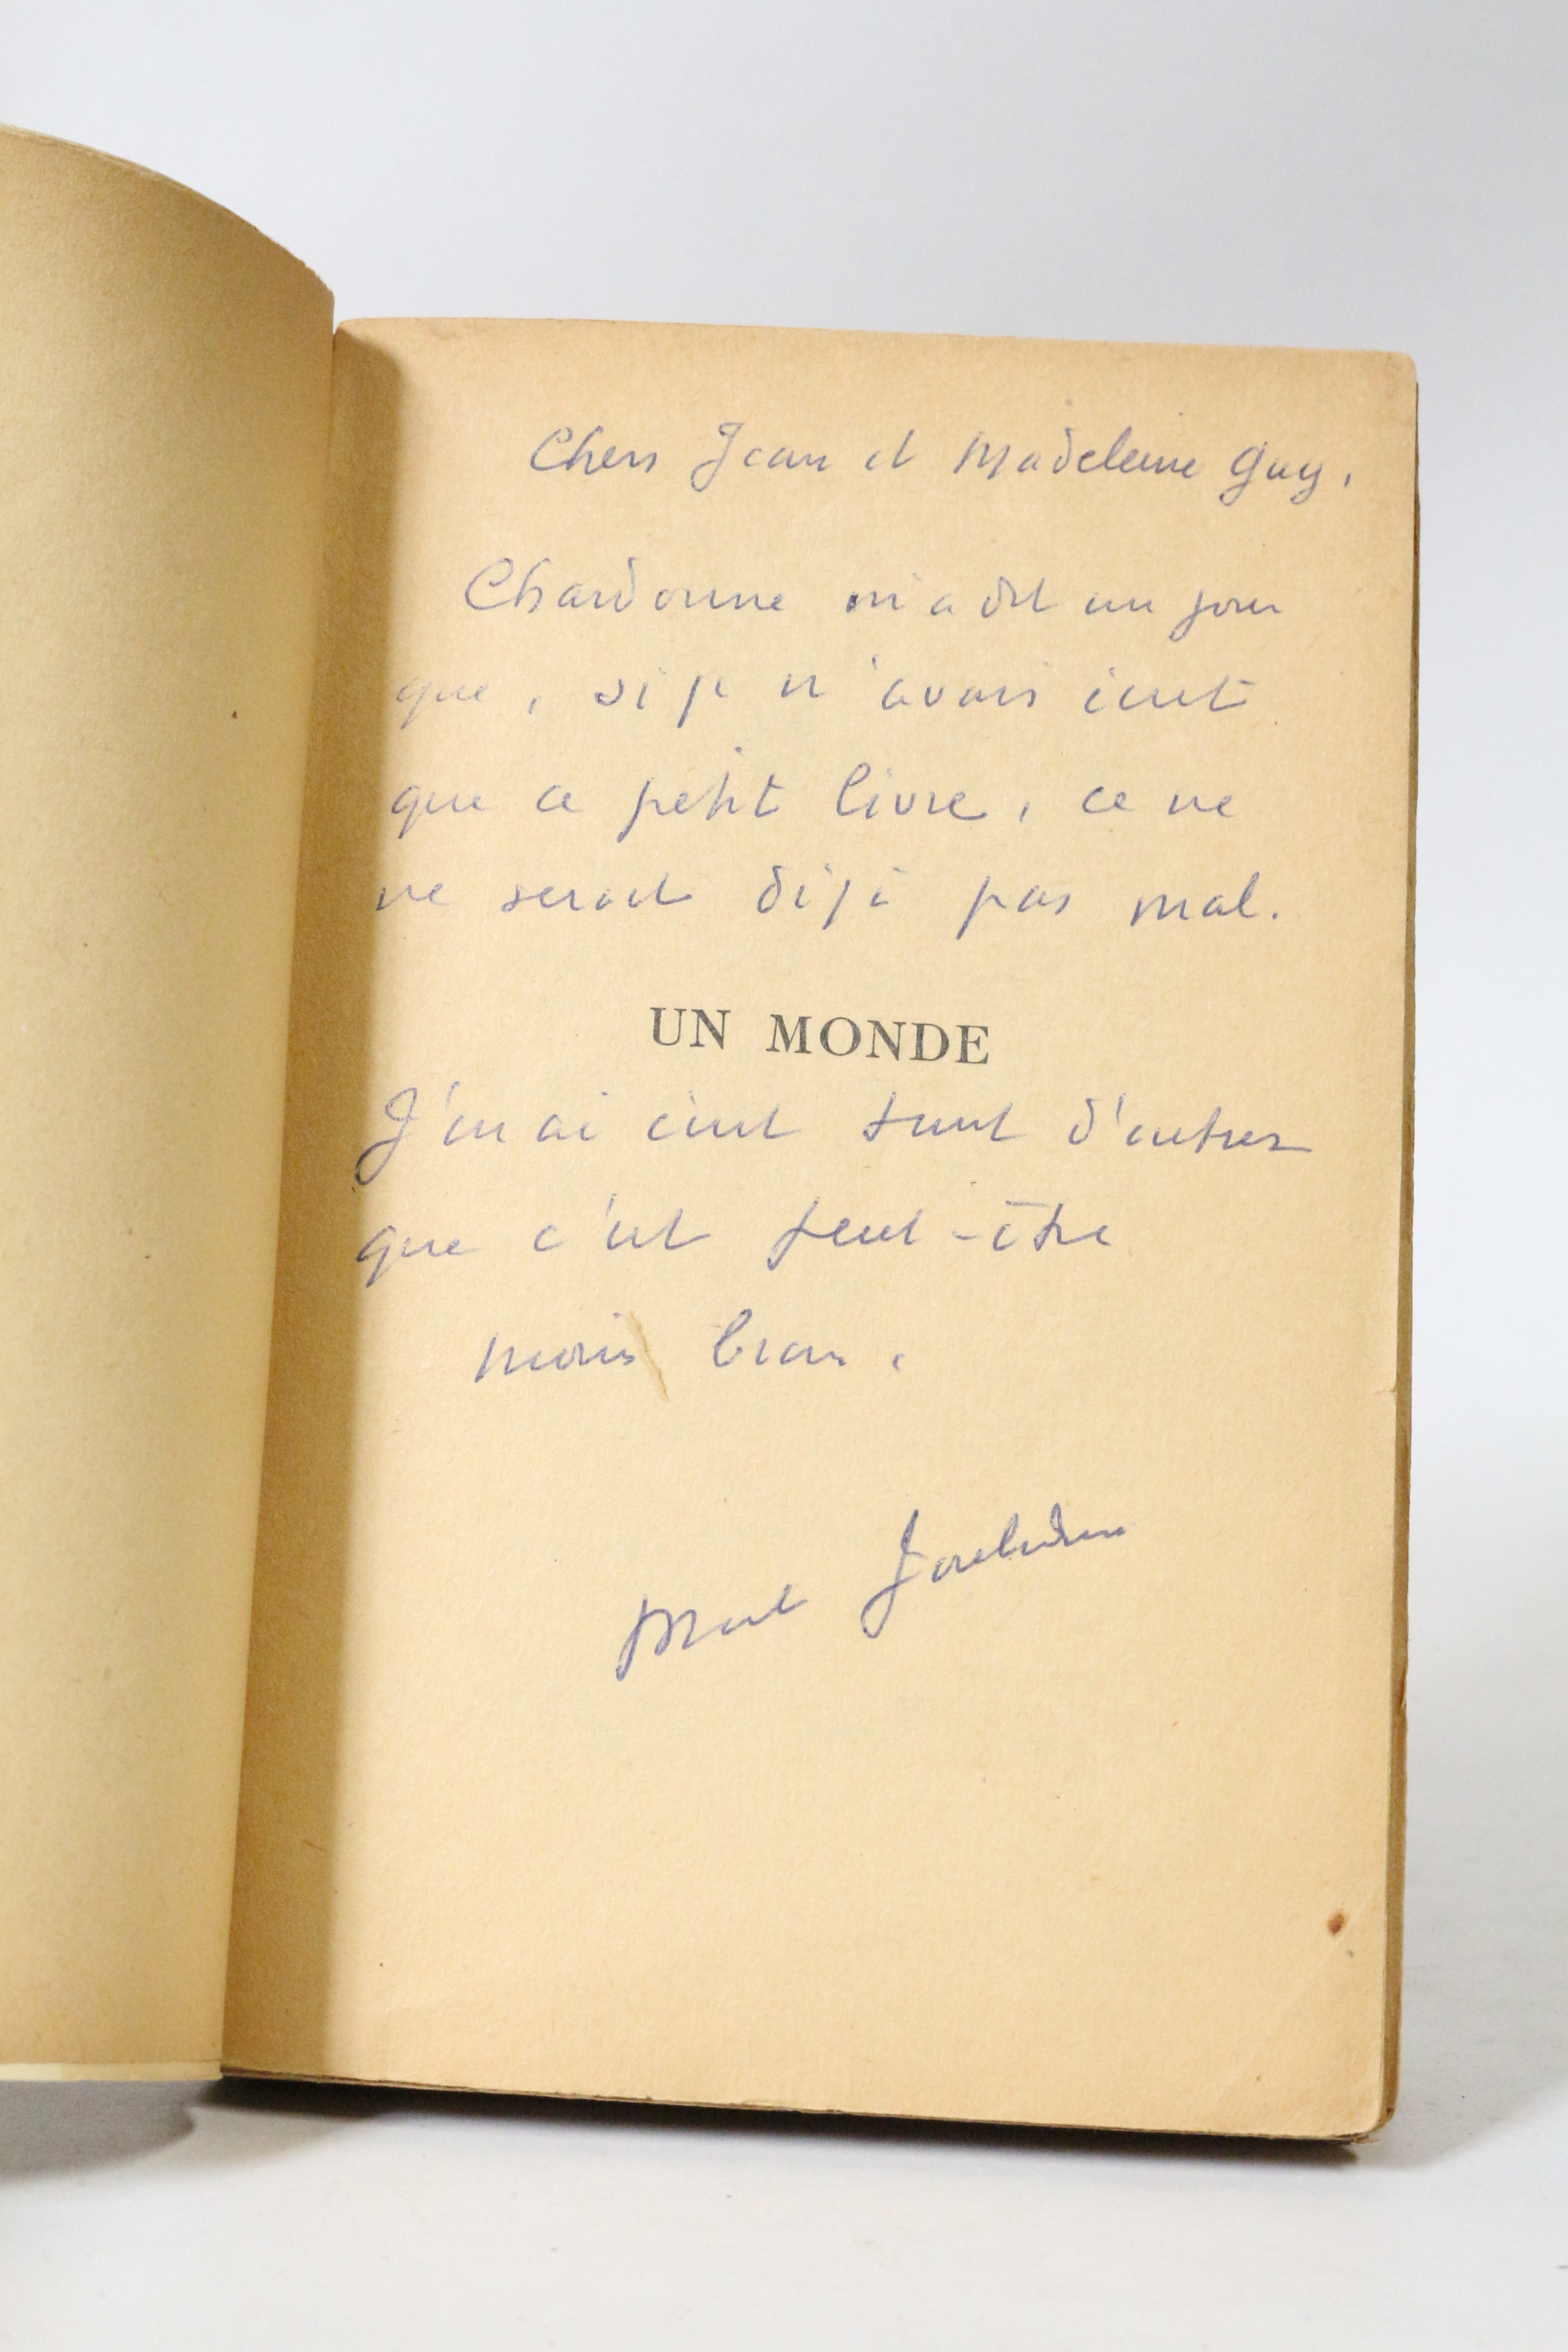 Chers Jean et Madeleine Guy,
Chardonne m'a dit un jour
que, si je n'avais écrit
que ce petit livre, ce ne
ne serait déjà pas mal.
UN MONDE
J'en ai écrit tant d'autres
que c'est peut-être
moins beau.
Marcel Jouhandeau